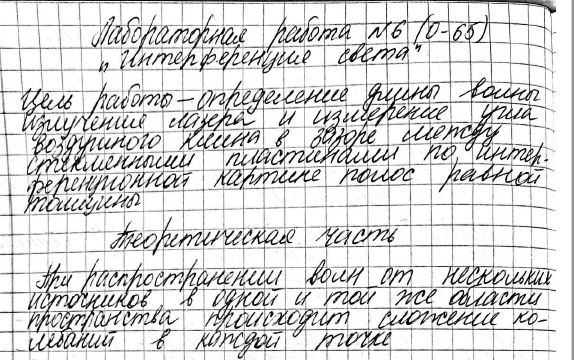 Лабораторная работа №6 (О-65)
"Интерференция света"
Цель работы – определение длины волны
излучения лазера и измерение угла
воздушного клина в зазоре между
стеклянными пластинами по интер-
ференционной картине полос равной
толщины
Теоретическая часть
При распространении волн от нескольких
источников в одной и той же области
пространства происходит сложение ко-
лебаний в каждой точке